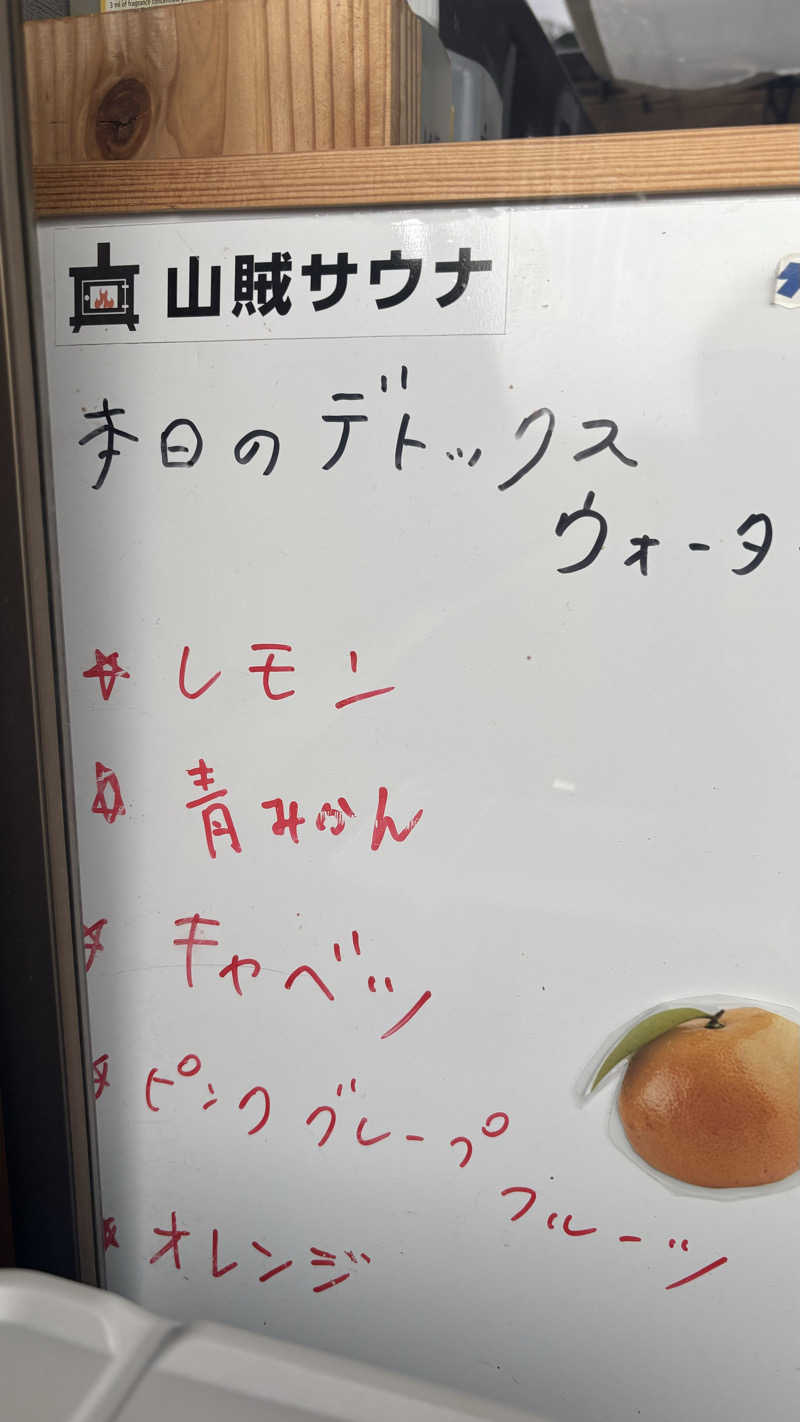 3 ml of fragrance concentrated
山賊サウナ
本日のデトックス
ウォーター
☆ レモン
☆ 青みかん
☆ キャベツ
☆ ピンクグレープ
フルーツ
☆ オレンジ